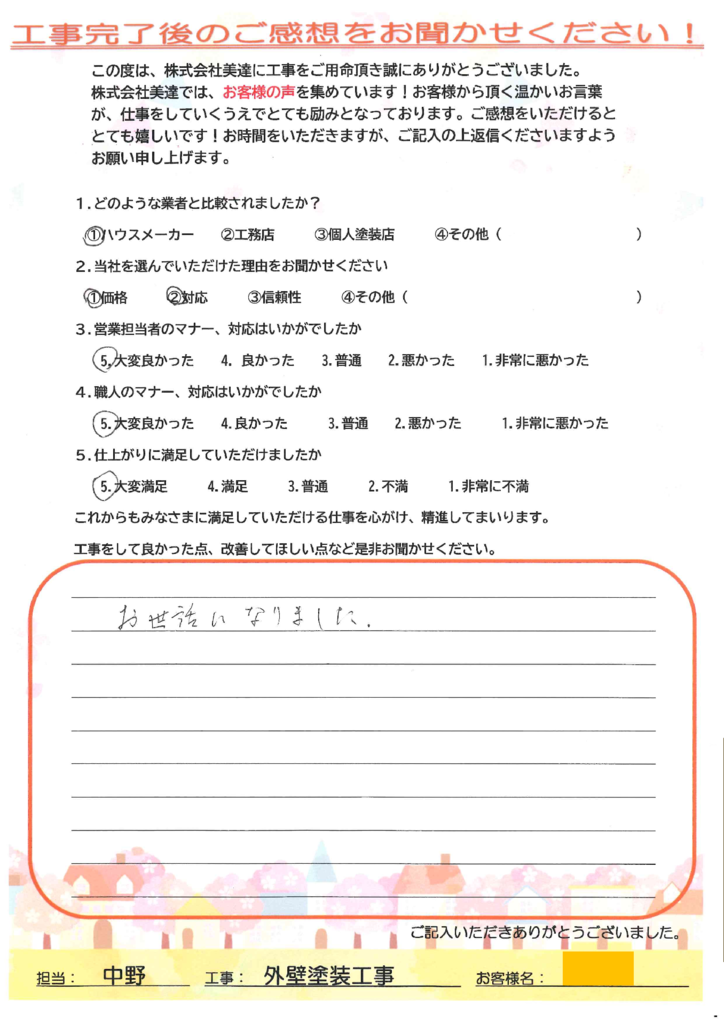 工事完了後のご感想をお聞かせください！
この度は、株式会社美達に工事をご用命頂き誠にありがとうございました。
株式会社美達では、お客様の声を集めています！お客様から頂く温かいお言葉
が、仕事をしていくうえでとても励みとなっております。ご感想をいただけると
とても嬉しいです！お時間をいただきますが、ご記入の上返信くださいますよう
お願い申し上げます。
1.どのような業者と比較されましたか？
①ハウスメーカー ②工務店 ③個人塗装店 ④その他（ ）
2.当社を選んでいただけた理由をお聞かせください
①価格 ②対応 ③信頼性 ④その他（ ）
3.営業担当者のマナー、対応はいかがでしたか
5.大変良かった 4. 良かった 3.普通 2.悪かった 1.非常に悪かった
4.職人のマナー、対応はいかがでしたか
5.大変良かった 4.良かった 3.普通 2.悪かった 1.非常に悪かった
5.仕上がりに満足していただけましたか
5.大変満足 4.満足 3.普通 2.不満 1.非常に不満
これからもみなさまに満足していただける仕事を心がけ、精進してまいります。
工事をして良かった点、改善してほしい点など是非お聞かせください。
お世話になりました.
ご記入いただきありがとうございました。
担当： 中野 工事： 外壁塗装工事 お客様名：